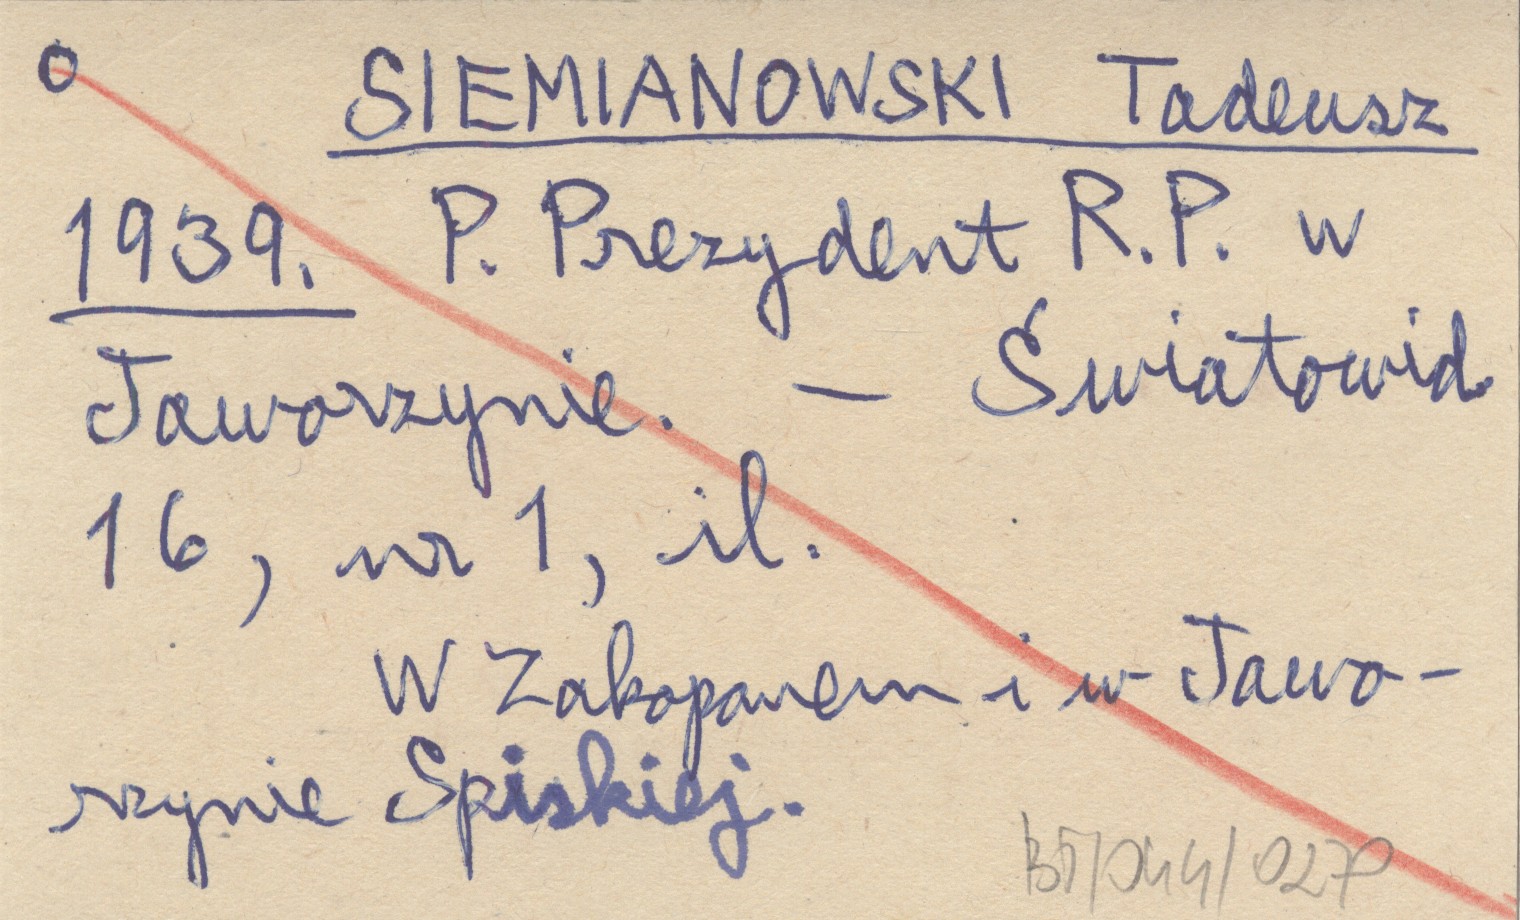 O SIEMIANOWSKI Tadeusz
1939. P. Prezydent R.P. w
Jaworzynie. — Światowid
16, nr 1, il.
W Zakopanem i w Jawo-
rzynie Spiskiej.
BT/044/027